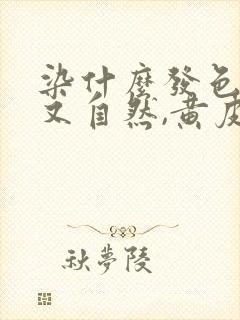 染什麼發色
又自然,黄皮
秋夢陵